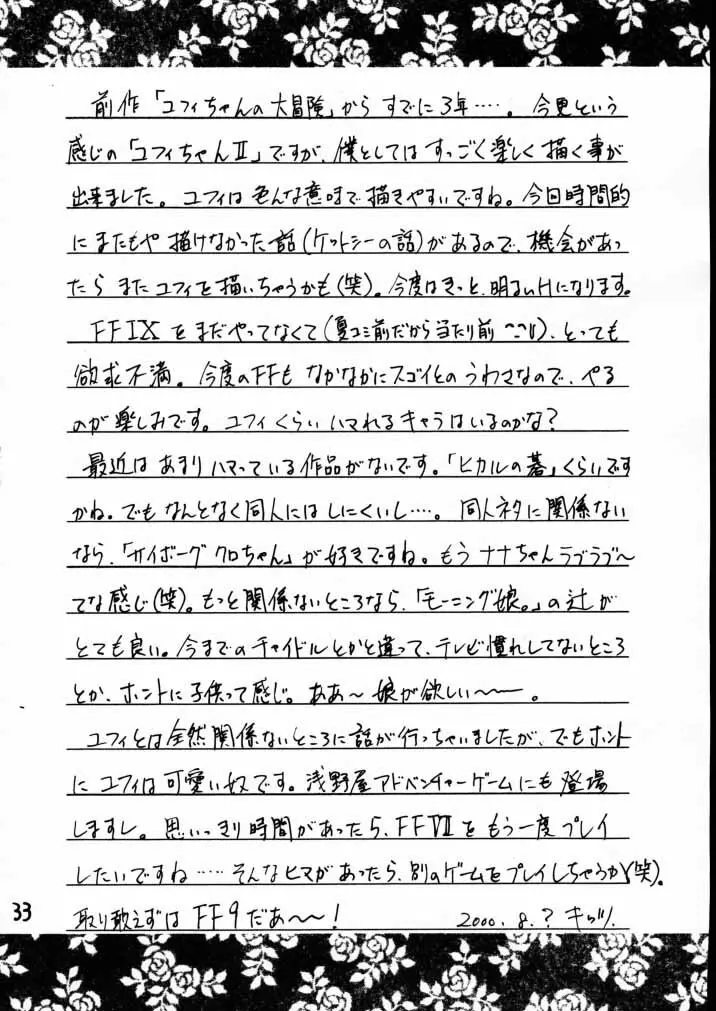 前作「ユフィちゃんの大冒険」からすでに3年‥‥。今更という
感じの「ユフィちゃんⅡ」ですが、僕としてはすっごく楽しく描く事が
出来ました。ユフィは色んな意味で描きやすいですね。今回時間的
にまたもや描けなかった話(ケットシーの話)があるので、機会があっ
たらまたユフィを描いちゃうかも(笑)。今度はきっと、明るいHになります。
FFⅨをまだやってなくて(夏コミ前だから当たり前^^;)、とっても
欲求不満。今度のFFもなかなかにスゴイとのうわさなので、やる
のが楽しみです。ユフィくらいハマれるキャラはいるのかな?
最近はあまりハマっている作品がないです。「ヒカルの碁」くらいです
かね。でもなんとなく同人にはしにくいし‥‥。同人ネタに関係ない
なら、「サイボーグクロちゃん」が好きですね。もうナナちゃんラブラブ〜
てな感じ(笑)。もっと関係ないところなら、「モーニング娘。」の辻が
とても良い。今までのチャイドルとかと違って、テレビ慣れしてないところ
とか、ホントに子供って感じ。ああ〜娘が欲しい〜〜。
ユフィとは全然関係ないところに話が行っちゃいましたが、でもホント
にユフィは可愛い奴です。浅野屋アドベンチャーゲームにも登場
しますし。思いっきり時間があったら、FFⅦをもう一度プレイ
したいですね‥‥そんなヒマがあったら、別のゲームをプレイしちゃうか(笑)。
取り敢えずはFF9だあ〜〜!
2000.8.?
33